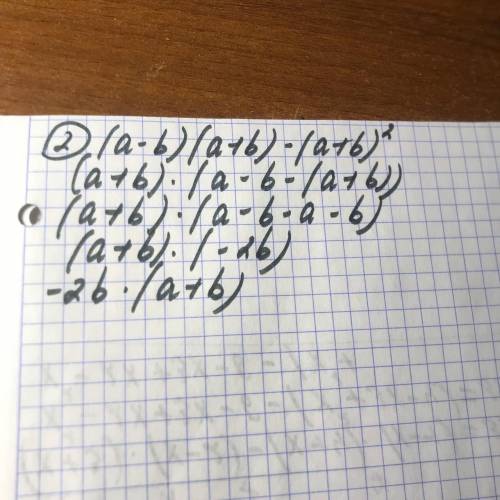 ② (a-b)(a+b)-(a+b)²
(a+b)·(a-b-(a+b))
(a+b)·(a-b-a-b)
(a+b)·(-2b)
-2b·(a+b)